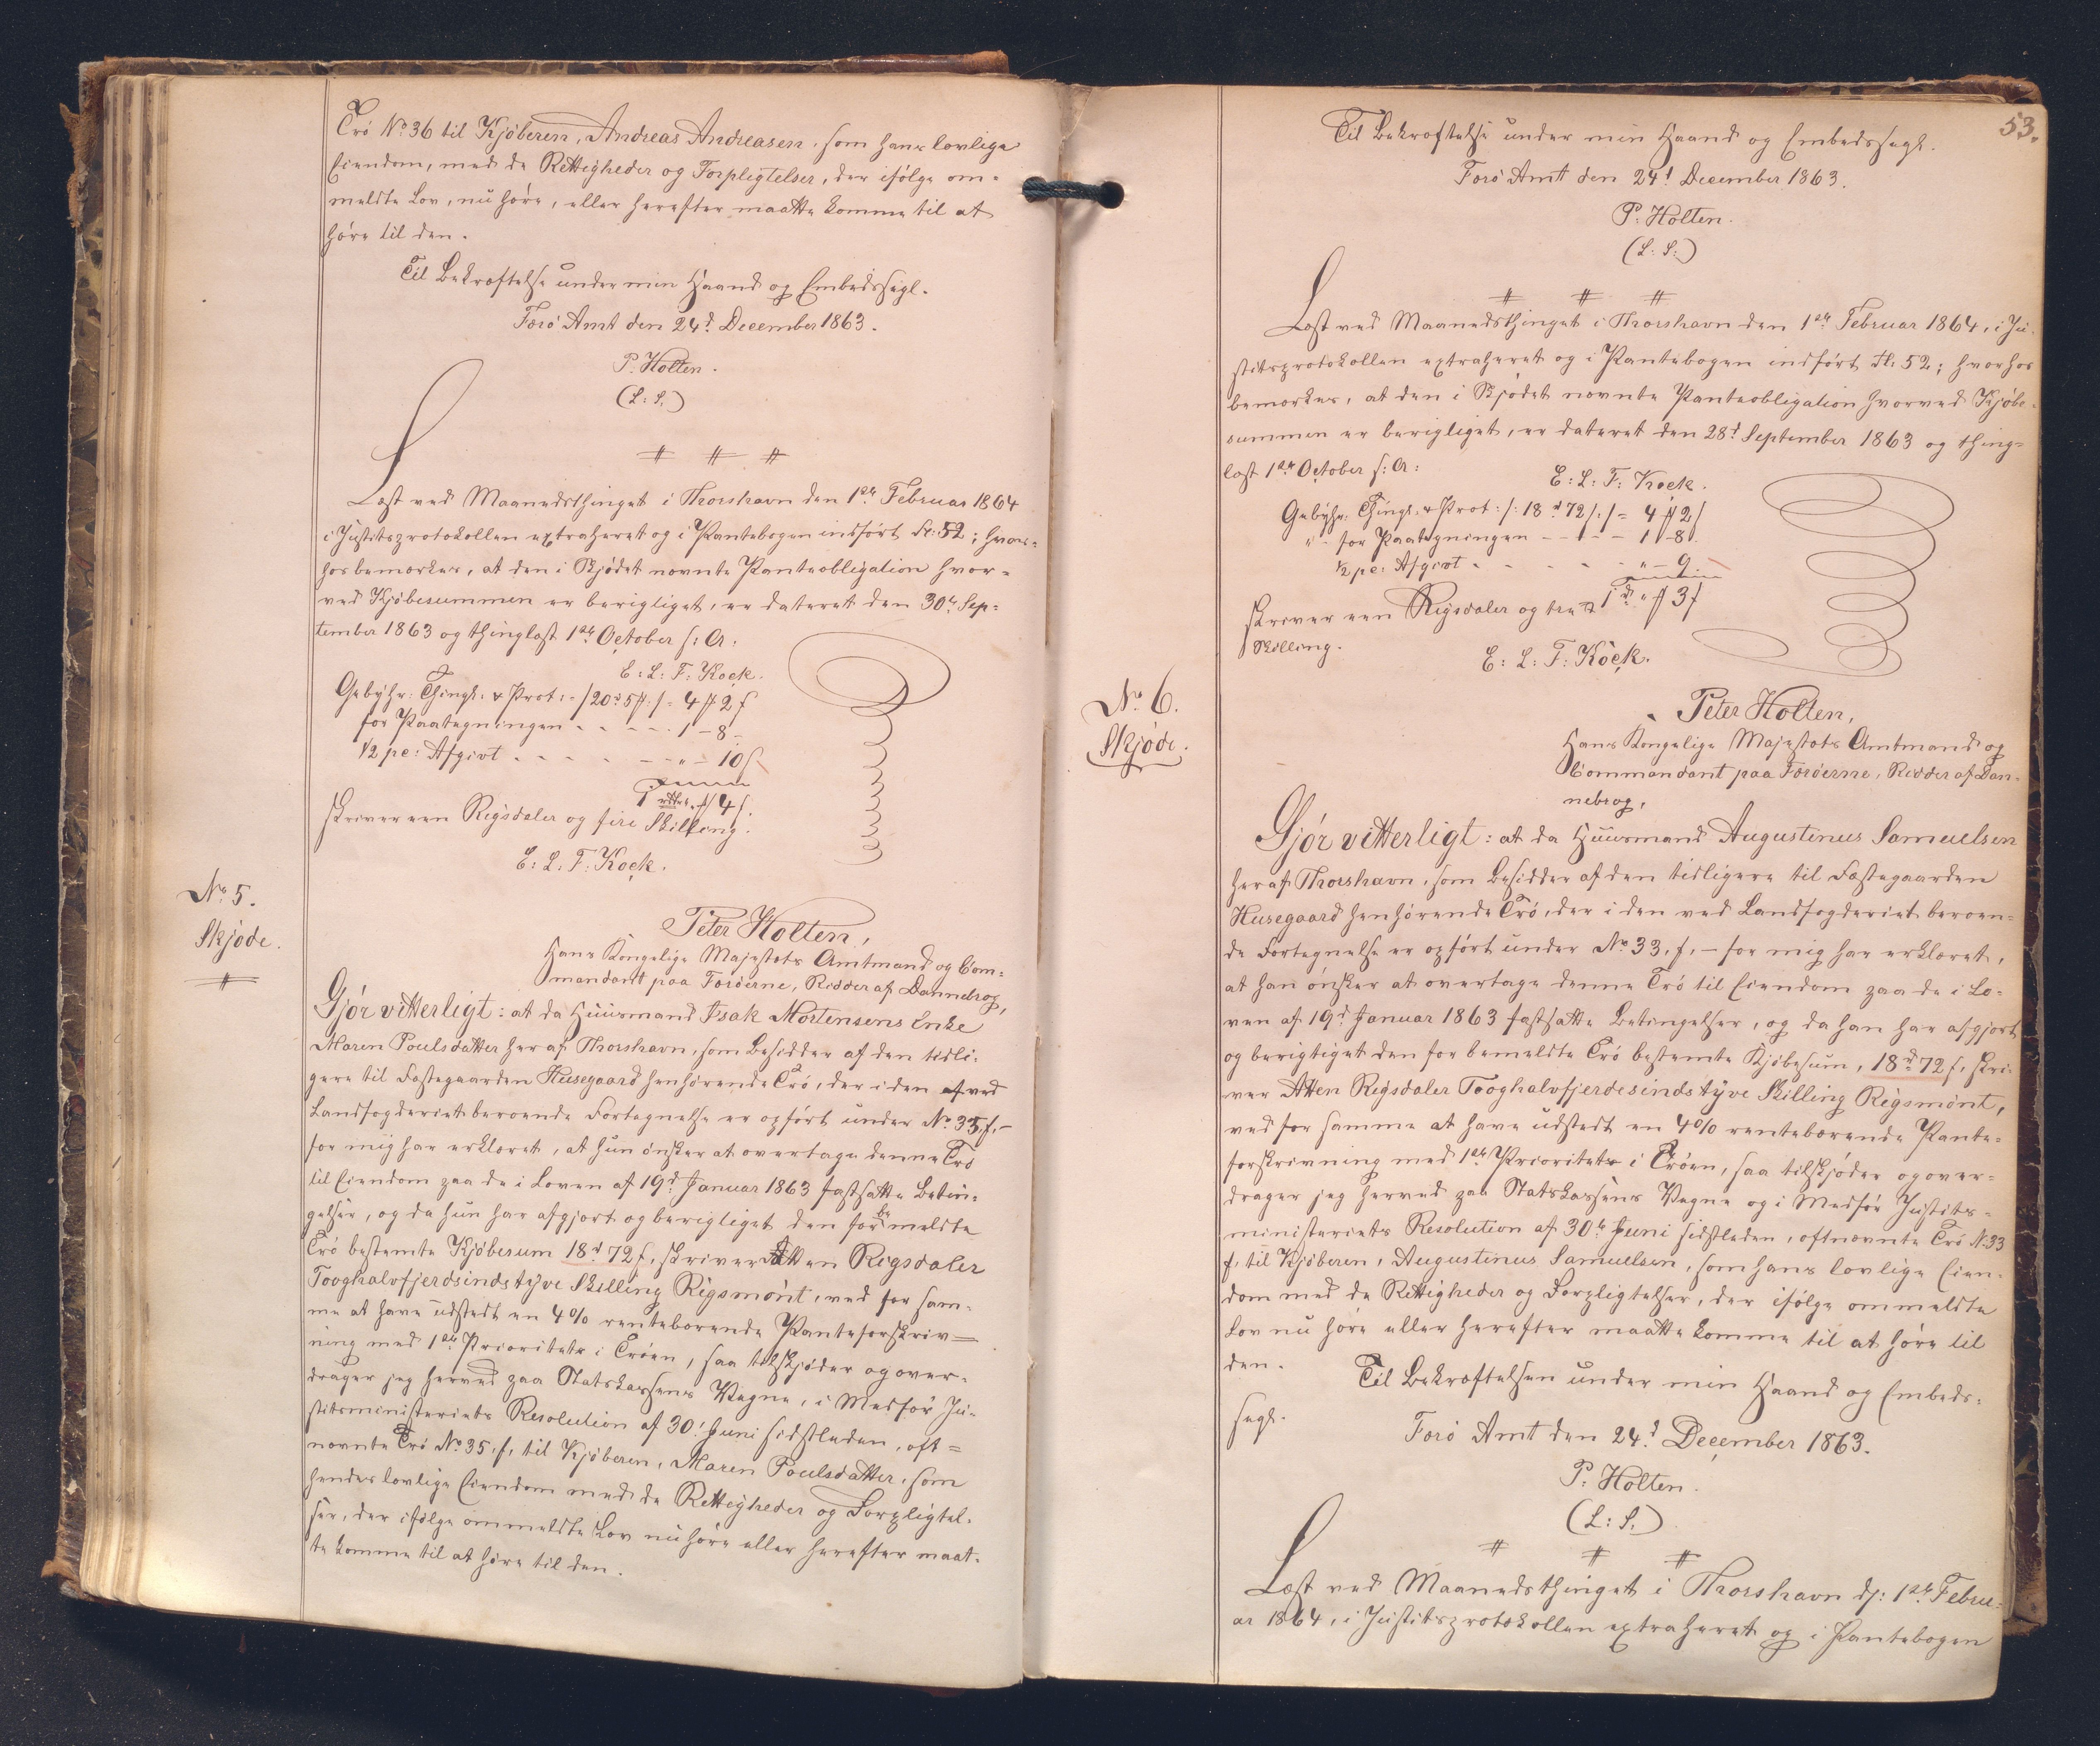 Trö No 36 til Kjöberen, Andreas Andreasen, som hans lovlige
Eiendom, med de Rettigheder og Forpligtelser, der ifölge om-
meldte Lov, nu höre, eller herefter maatte komme til at
höre til den.
Til Bekræftelse under min Haand og Embedssegl.
Færö Amt den 24d December 1863.
P. Holten.
(L: S.)
Læst ved Maanedsthinget i Thorshavn den 1ste Februar 1864
i Justitsprotokollen extraheret og i Pantebogen indfört Fl: 52; hvor-
hos bemærkes, at den i Skjödet nævnte Panteobligation hvor-
ved Kjöbesummen er berigtiget, er dateret den 30te Sep-
tember 1863 og thinglæst 1ste October s: A:
E: L: F: Kock.
Gebyhr: Thingl: & Prot: /20d 5ß:/ = 4 ß 2 f
for Paategningen - - - - 1 - 8 -
1/2 pc: Afgivt - - - - - " - 10 f
1 rdlr. " ß 4 f.
skriver een Rigsdaler og fire Skilling.
E: L: F: Kock.
No 5.
Skjöde.
Peter Holten,
Hans Kongelige Majestæts Amtmand og Com-
mandant paa Færöerne, Ridder af Dannebrog,
Gjör vitterligt: at da Huusmand Isak Mortensens Enke
Maren Poulsdatter her af Thorshavn, som Besidder af den tidli-
gere til Fæstegaarden Husegaard henhörende Trö, der i den af ved
Landfogderiet beroende Fortegnelse er opfört under No 35, f, -
for mig har erklæret, at hun önsker at overtage denne Trö
til Eiendom paa de i Loven af 19d Januar 1863 fastsatte Betin-
gelser, og da hun har afgjort og berigtiget den for be meldte
Trö bestemte Kjöbesum 18d 72 f, skriver Atten Rigsdaler
Tooghalvfjerdsindstyve Skilling Rigsmönt, ved for sam-
me at have udstedt en 4% rentebærende Panteforskriv-
ning med 1ste Prioritete i Tröen, saa tilskjöder og over-
drager jeg herved paa Statskassens Vegne, i Medför Ju-
stitsministeriets Resolution af 30te Juni sidstleden, oft-
nævnte Trö No 35, f, til Kjöberen, Maren Poulsdatter, som
hendes lovlige Eiendom med de Rettigheder og Forpligtel-
ser, der ifölge ommeldte Lov nu höre eller herefter maat-
te komme til at höre til den.
53.
Til Bekræftelse under min Haand og Embedssegl.
Færö Amt den 24d December 1863.
P. Holten.
(L: S:)
Læst ved Maanedsthinget i Thorshavn den 1ste Februar 1864, i Ju-
stitsprotokollen extraheret og i Pantebogen indfört Fl: 52; hvorhos
bemærkes, at den i Skjödet nævnte Panteobligation hvorved Kjöbe-
summen er berigtiget, er dateret den 28d September 1863 og thing-
læst 1ste October s: A:
E: L: F: Kock.
Gebyhr: Thingl: & Prot: /: 18d 72 /:/ = 4 ß 2 f
" - for Paategningen - - - - 1 - 8.
1/2 pc: Afgivt - - - - - " - 9. -
1 d " ß 3 f
skriver een Rigsdaler og tre
Skilling.
E: L: F: Kock.
No 6.
Skjöde.
Peter Holten,
Hans Kongelige Majestæts Amtmand og
Commandant paa Færöerne, Ridder af Dan-
nebrog,
Gjör vitterligt: at da Huusmand Augustinus Samuelsen
her af Thorshavn, som Besidder af den tidligere til Fæstegaarden
Husegaard henhörende Trö, der i den ved Landfogderiet beroen-
de Fortegnelse er opfört under No 33, f, - for mig har erklæret,
at han önsker at overtage denne Trö til Eiendom paa de i Lo-
ven af 19d Januar 1863 fastsatte Betingelser, og da han har afgjort
og berigtiget den for bemeldte Trö bestemte Kjöbesum, 18d 72 f, skri-
ver Atten Rigsdaler Tooghalvfjerdesindstyve Skilling Rigsmönt,
ved for samme at have udstedt en 4% rentebærende Pante-
forskrivning med 1ste Prioritete i Tröen, saa tilskjöder og over-
drager jeg herved paa Statskassens Vegne og i Medför Justits-
ministeriets Resolution af 30te Juni sidstleden, oftnævnte Trö No 33
f, til Kjöberen, Augustinus Samuelsen, som hans lovlige Eien-
dom med de Rettigheder og Forpligtelser, der ifölge ommeldte
Lov nu höre eller herefter maatte komme til at höre til
den.
Til Bekræftelsen under min Haand og Embeds-
segl.
Færö Amt den 24d December 1863.
P: Holten.
(L: S.)
Læst ved Maanedsthinget i Thorshavn d/: 1ste Febru-
ar 1864, i Justitsprotokollen extraheret og i Pantebogen